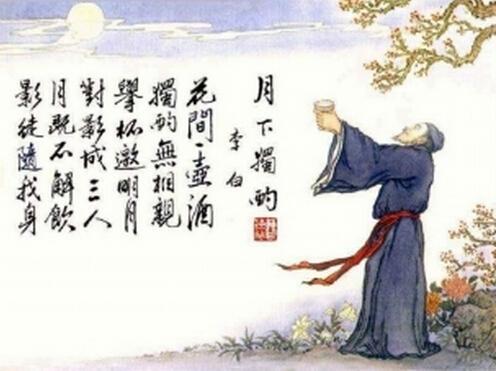 月下獨酌
李白
花間一壺酒
獨酌無相親
舉杯邀明月
對影成三人
月既不解飲
影徒隨我身